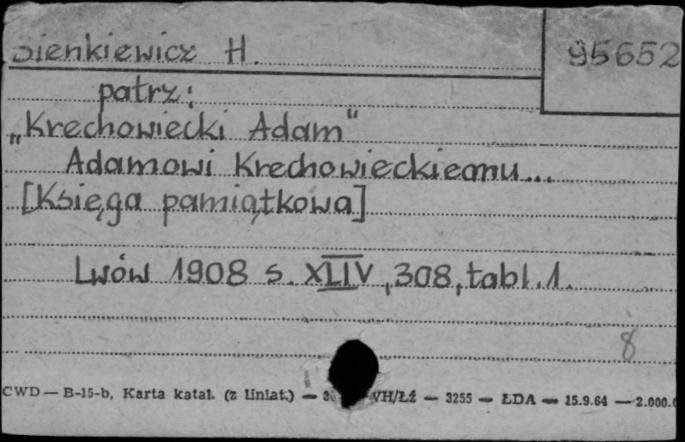 Sienkiewicz H.
95652
patrz:
„Krechowiecki Adam"
Adamowi Krechowieckiemu...
[Księga pamiątkowa]
Lwów 1908 s. XLIV, 308, tabl. 1.
8
CWD — B-15-b, Karta katal. (z liniat.) — VH/Łź — 3255 — ŁDA — 15.9.64 — 2.000.